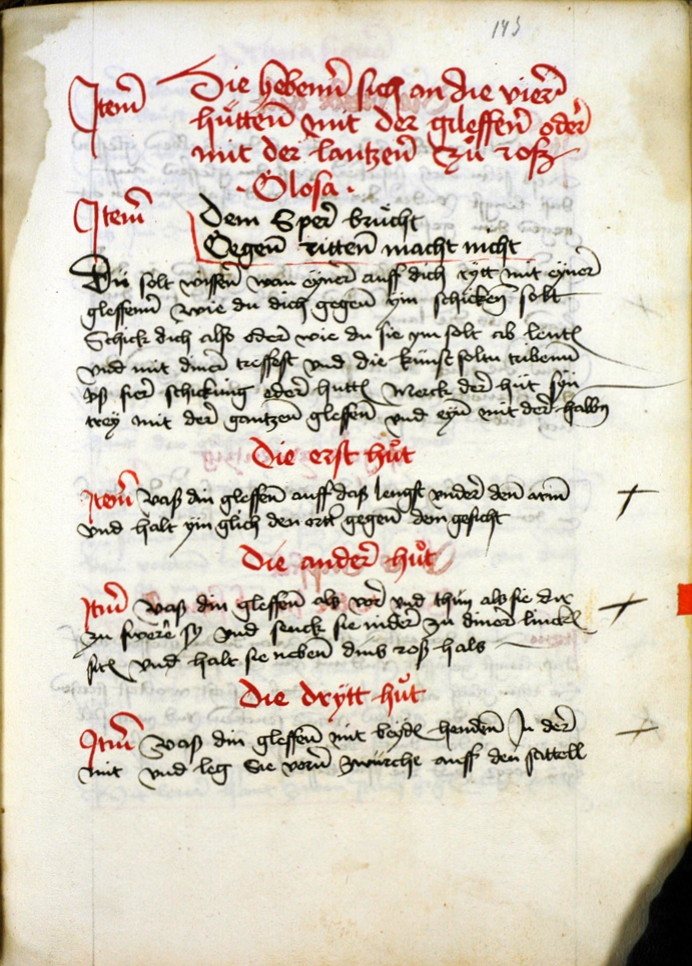 143
Item Hie hebenn sich an die vierr
hüttenn mit der gleffenn oder
mit der lantzenn Zů roß
· Glosa ·
Item Dem Sper brücht
Gegenn rittenn macht nicht
Dü solt wissenn wan eyner auff dich rytt mit eyner
gleffenn wie du dich gegen ym schicken solt
Schick dich also oder wie du sie ym solt ab
vnd mit diner treffest vnd die kunst soltu tribenn
vß fier schickung oder hutt Merck der hüt syn
trey mit der gantzen gleffen vnd eyn mit der halbn
Die erst hůt
Item Vaß din gleffenn auff daß lengst vnder den arm
vnd halt ym glich den ortt gegen den gesicht
Die ander hůt
Item vaß din gleffenn als vor vnd thun als sie dir
zu swere sy vnd senck sie nider zu diner linck
sit vnd halt sie neben dins roß hals
Die drÿtt hůt
Item Vaß din gleffenn mit beyd hendenn In der
mit vnd leg Sie vorn zwürche auff den sattell